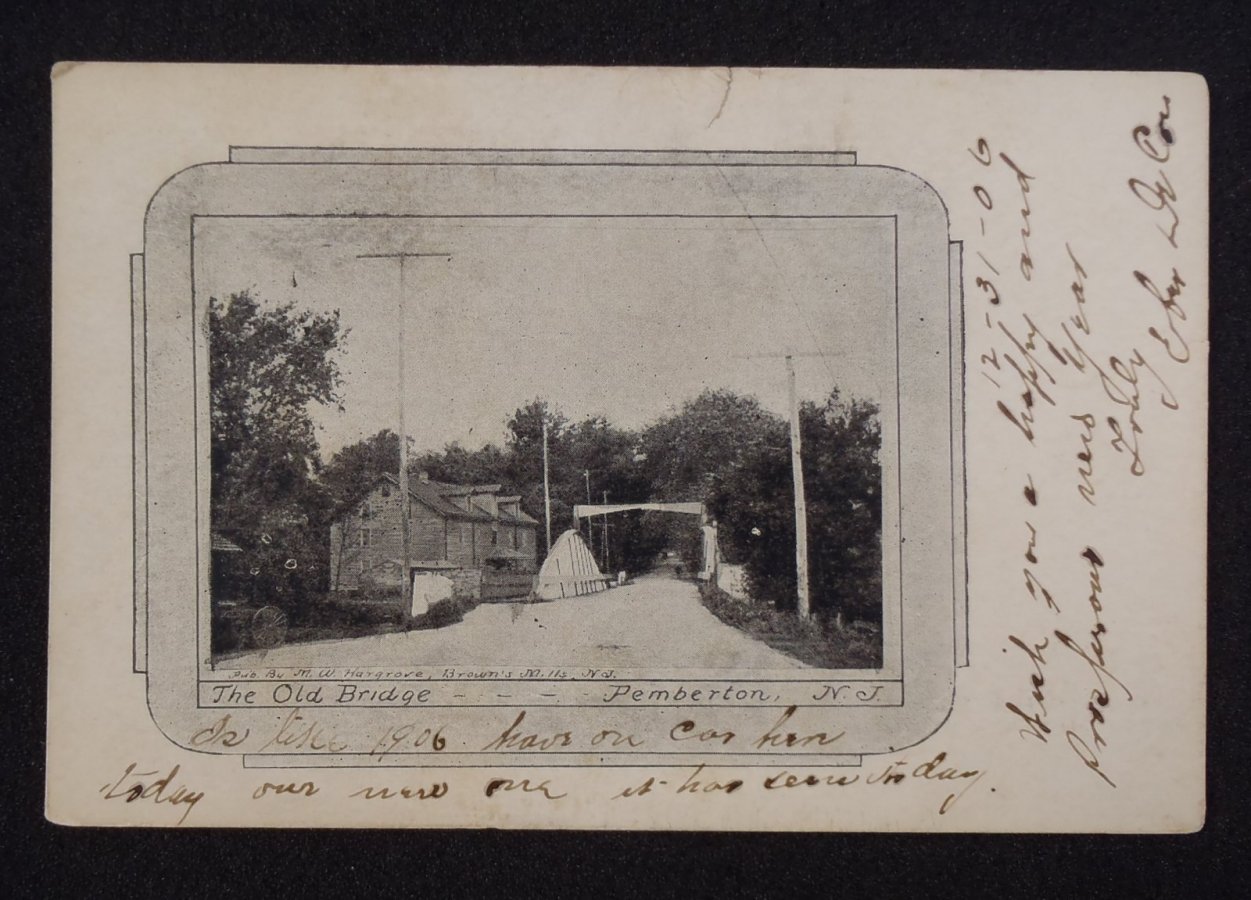 Pub. By M. W. Hargrove, Brown's Mills, N.J.
The Old Bridge - - - - Pemberton, N. J.
Is like 1906 have on
today our one it has today.
12-31-06
Wish you a happy and
Prosperous Year
Truly